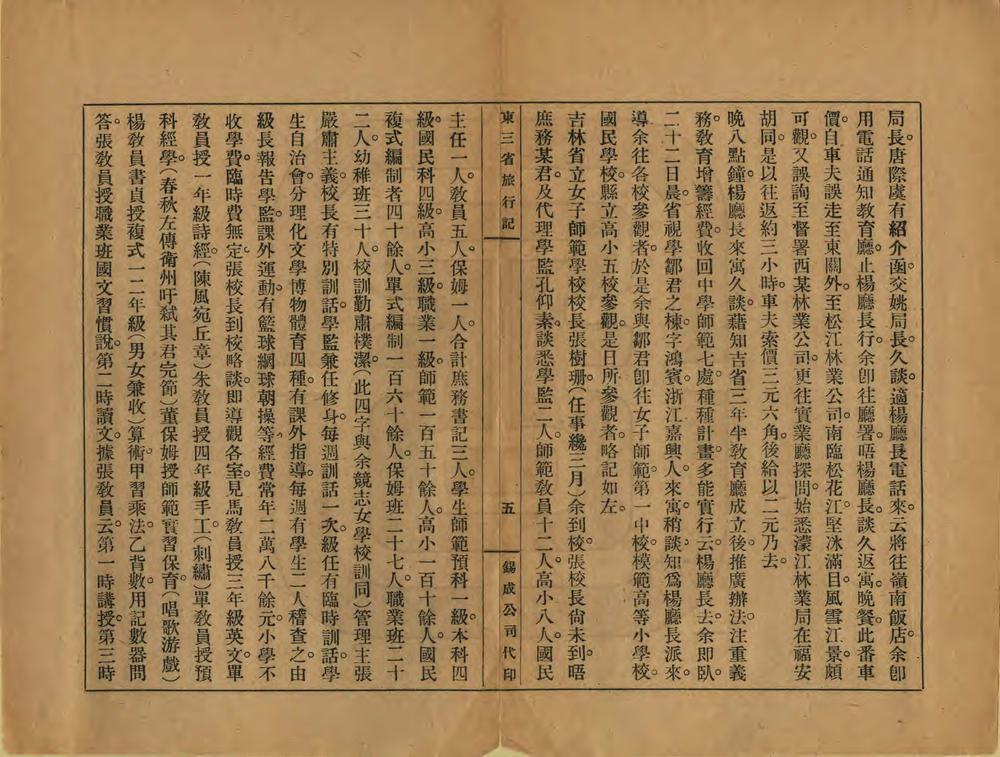 局長。唐際虞有紹介函。交姚局長。久談。適楊廳長電話來。云將往嶺南飯店。余卽
用電話通知教育廳。止楊廳長行。余卽往廳署。晤楊廳長。談久返寓。晚餐。此番車
價。自車夫誤走至東關外。至松江林業公司。南臨松花江。堅冰滿目。風雪江景。頗
可觀。又誤詢至督署西某林業公司。更往實業廳探問。始悉濛江林業局在福安
胡同。是以往返約三小時。車夫索價三元六角。後給以二元乃去。
晚八點鐘。楊廳長來寓久談。藉知吉省三年半敎育廳成立後。推廣辦法。注重義
務敎育。增籌經費。收回中學師範七處。種種計畫。多能實行云。楊廳長去。余即臥。
二十二日晨。省視學鄒君之棟。字鴻賓。浙江嘉興人。來寓稍談。知爲楊廳長派來。
導余往各校參觀者。於是余與鄒君卽往女子師範。第一中校。模範高等小學校。
國民學校。縣立高小五校參觀。是日所參觀者。略記如左。
吉林省立女子師範學校校長張樹珊。(任事纔三月)余到校。張校長尙未到。晤
庶務某君。及代理學監孔仰素。談悉學監二人。師範敎員十二人。高小八人。國民
東三省旅行記
五
錫成公司代印
主任一人。敎員五人。保姆一人。合計庶務書記三人。學生師範預科一級。本科四
級。國民科四級。高小三級。職業一級。師範一百五十餘人。高小一百十餘人。國民
複式編制者四十餘人。單式編制一百六十餘人。保姆班二十七人。職業班二十
二人。幼稚班三十人。校訓勤肅樸潔。(此四字與余競志女學校訓同)管理主張
嚴肅主義。校長有特別訓話。學監兼任修身。每週訓話一次。級任有臨時訓話。學
生自治會。分理化文學博物體育四種。有課外指導。每週有學生二人稽查之。由
級長報告學監。課外運動有籃球網球朝操等。經費常年二萬八千餘元。小學不
收學費。臨時費無定。張校長到校略談。即導觀各室。見馬敎員授三年級英文。單
敎員授一年級詩經。(陳風宛丘章)朱敎員授四年級手工。(刺繡)單敎員授預
科經學。(春秋左傳衞州吁弒其君完節)董保姆授師範實習保育(唱歌游戲)
楊敎員書貞授複式一二年級(男女兼收)算術。甲習乘法。乙背數。用記數器問
答。張敎員授職業班國文習慣說。第二時讀文。據張敎員云。第一時講授。第三時